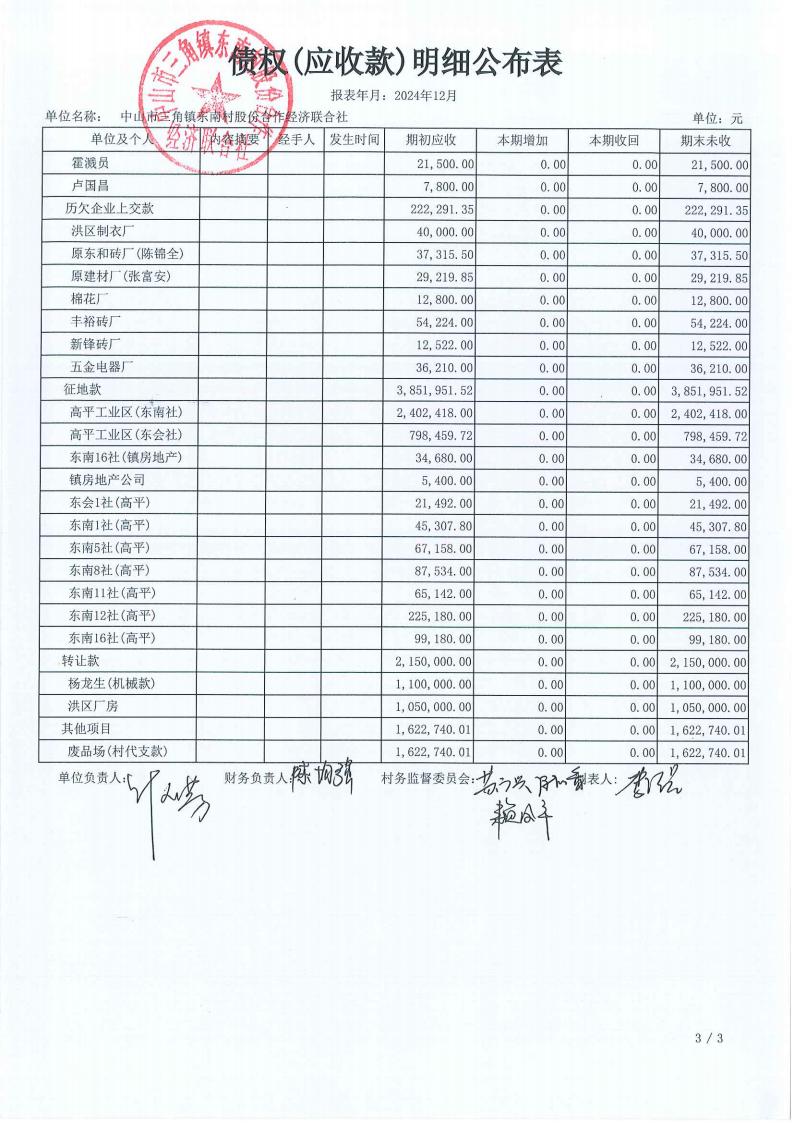 债权(应收款)明细公布表
报表年月：2024年12月
单位名称： 中山市三角镇东南村股份合作经济联合社 单位：元
单位及个人 内容摘要 经手人 发生时间 期初应收 本期增加 本期收回 期末未收
霍溅员 21,500.00 0.00 0.00 21,500.00
卢国昌 7,800.00 0.00 0.00 7,800.00
历欠企业上交款 222,291.35 0.00 0.00 222,291.35
洪区制衣厂 40,000.00 0.00 0.00 40,000.00
原东和砖厂(陈锦全) 37,315.50 0.00 0.00 37,315.50
原建材厂(张富安) 29,219.85 0.00 0.00 29,219.85
棉花厂 12,800.00 0.00 0.00 12,800.00
丰裕砖厂 54,224.00 0.00 0.00 54,224.00
新锋砖厂 12,522.00 0.00 0.00 12,522.00
五金电器厂 36,210.00 0.00 0.00 36,210.00
征地款 3,851,951.52 0.00 0.00 3,851,951.52
高平工业区(东南社) 2,402,418.00 0.00 0.00 2,402,418.00
高平工业区(东会社) 798,459.72 0.00 0.00 798,459.72
东南16社(镇房地产) 34,680.00 0.00 0.00 34,680.00
镇房地产公司 5,400.00 0.00 0.00 5,400.00
东会1社(高平) 21,492.00 0.00 0.00 21,492.00
东南1社(高平) 45,307.80 0.00 0.00 45,307.80
东南5社(高平) 67,158.00 0.00 0.00 67,158.00
东南8社(高平) 87,534.00 0.00 0.00 87,534.00
东南11社(高平) 65,142.00 0.00 0.00 65,142.00
东南12社(高平) 225,180.00 0.00 0.00 225,180.00
东南16社(高平) 99,180.00 0.00 0.00 99,180.00
转让款 2,150,000.00 0.00 0.00 2,150,000.00
杨龙生(机械款) 1,100,000.00 0.00 0.00 1,100,000.00
洪区厂房 1,050,000.00 0.00 0.00 1,050,000.00
其他项目 1,622,740.01 0.00 0.00 1,622,740.01
废品场(村代支款) 1,622,740.01 0.00 0.00 1,622,740.01
单位负责人: 财务负责人: 村务监督委员会: 制表人:
3 / 3